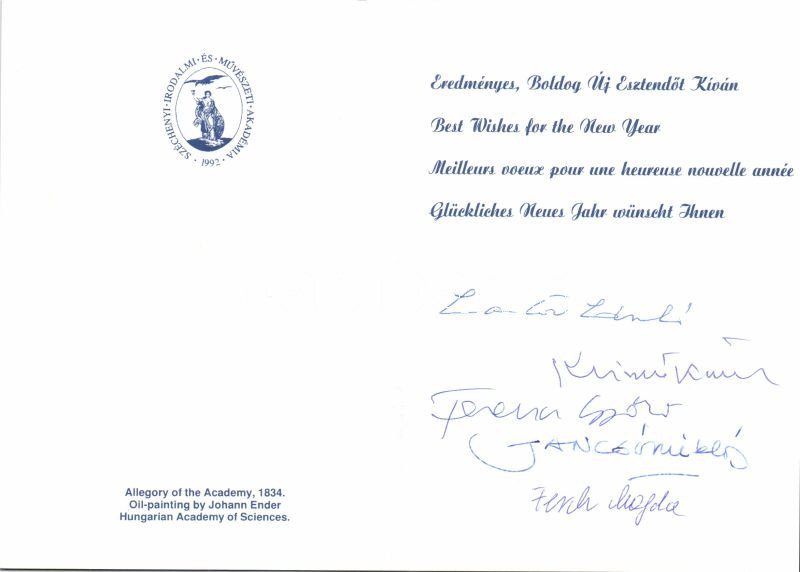 SZÉCHENYI · IRODALMI · ÉS · MŰVÉSZETI · AKADÉMIA · 1992 ·
Allegory of the Academy, 1834.
Oil-painting by Johann Ender
Hungarian Academy of Sciences.
Eredményes, Boldog Új Esztendőt Kíván
Best Wishes for the New Year
Meilleurs voeux pour une heureuse nouvelle année
Glückliches Neues Jahr wünscht Ihnen
László
Ferenc Győző
JANCSÓ Miklós
Magda